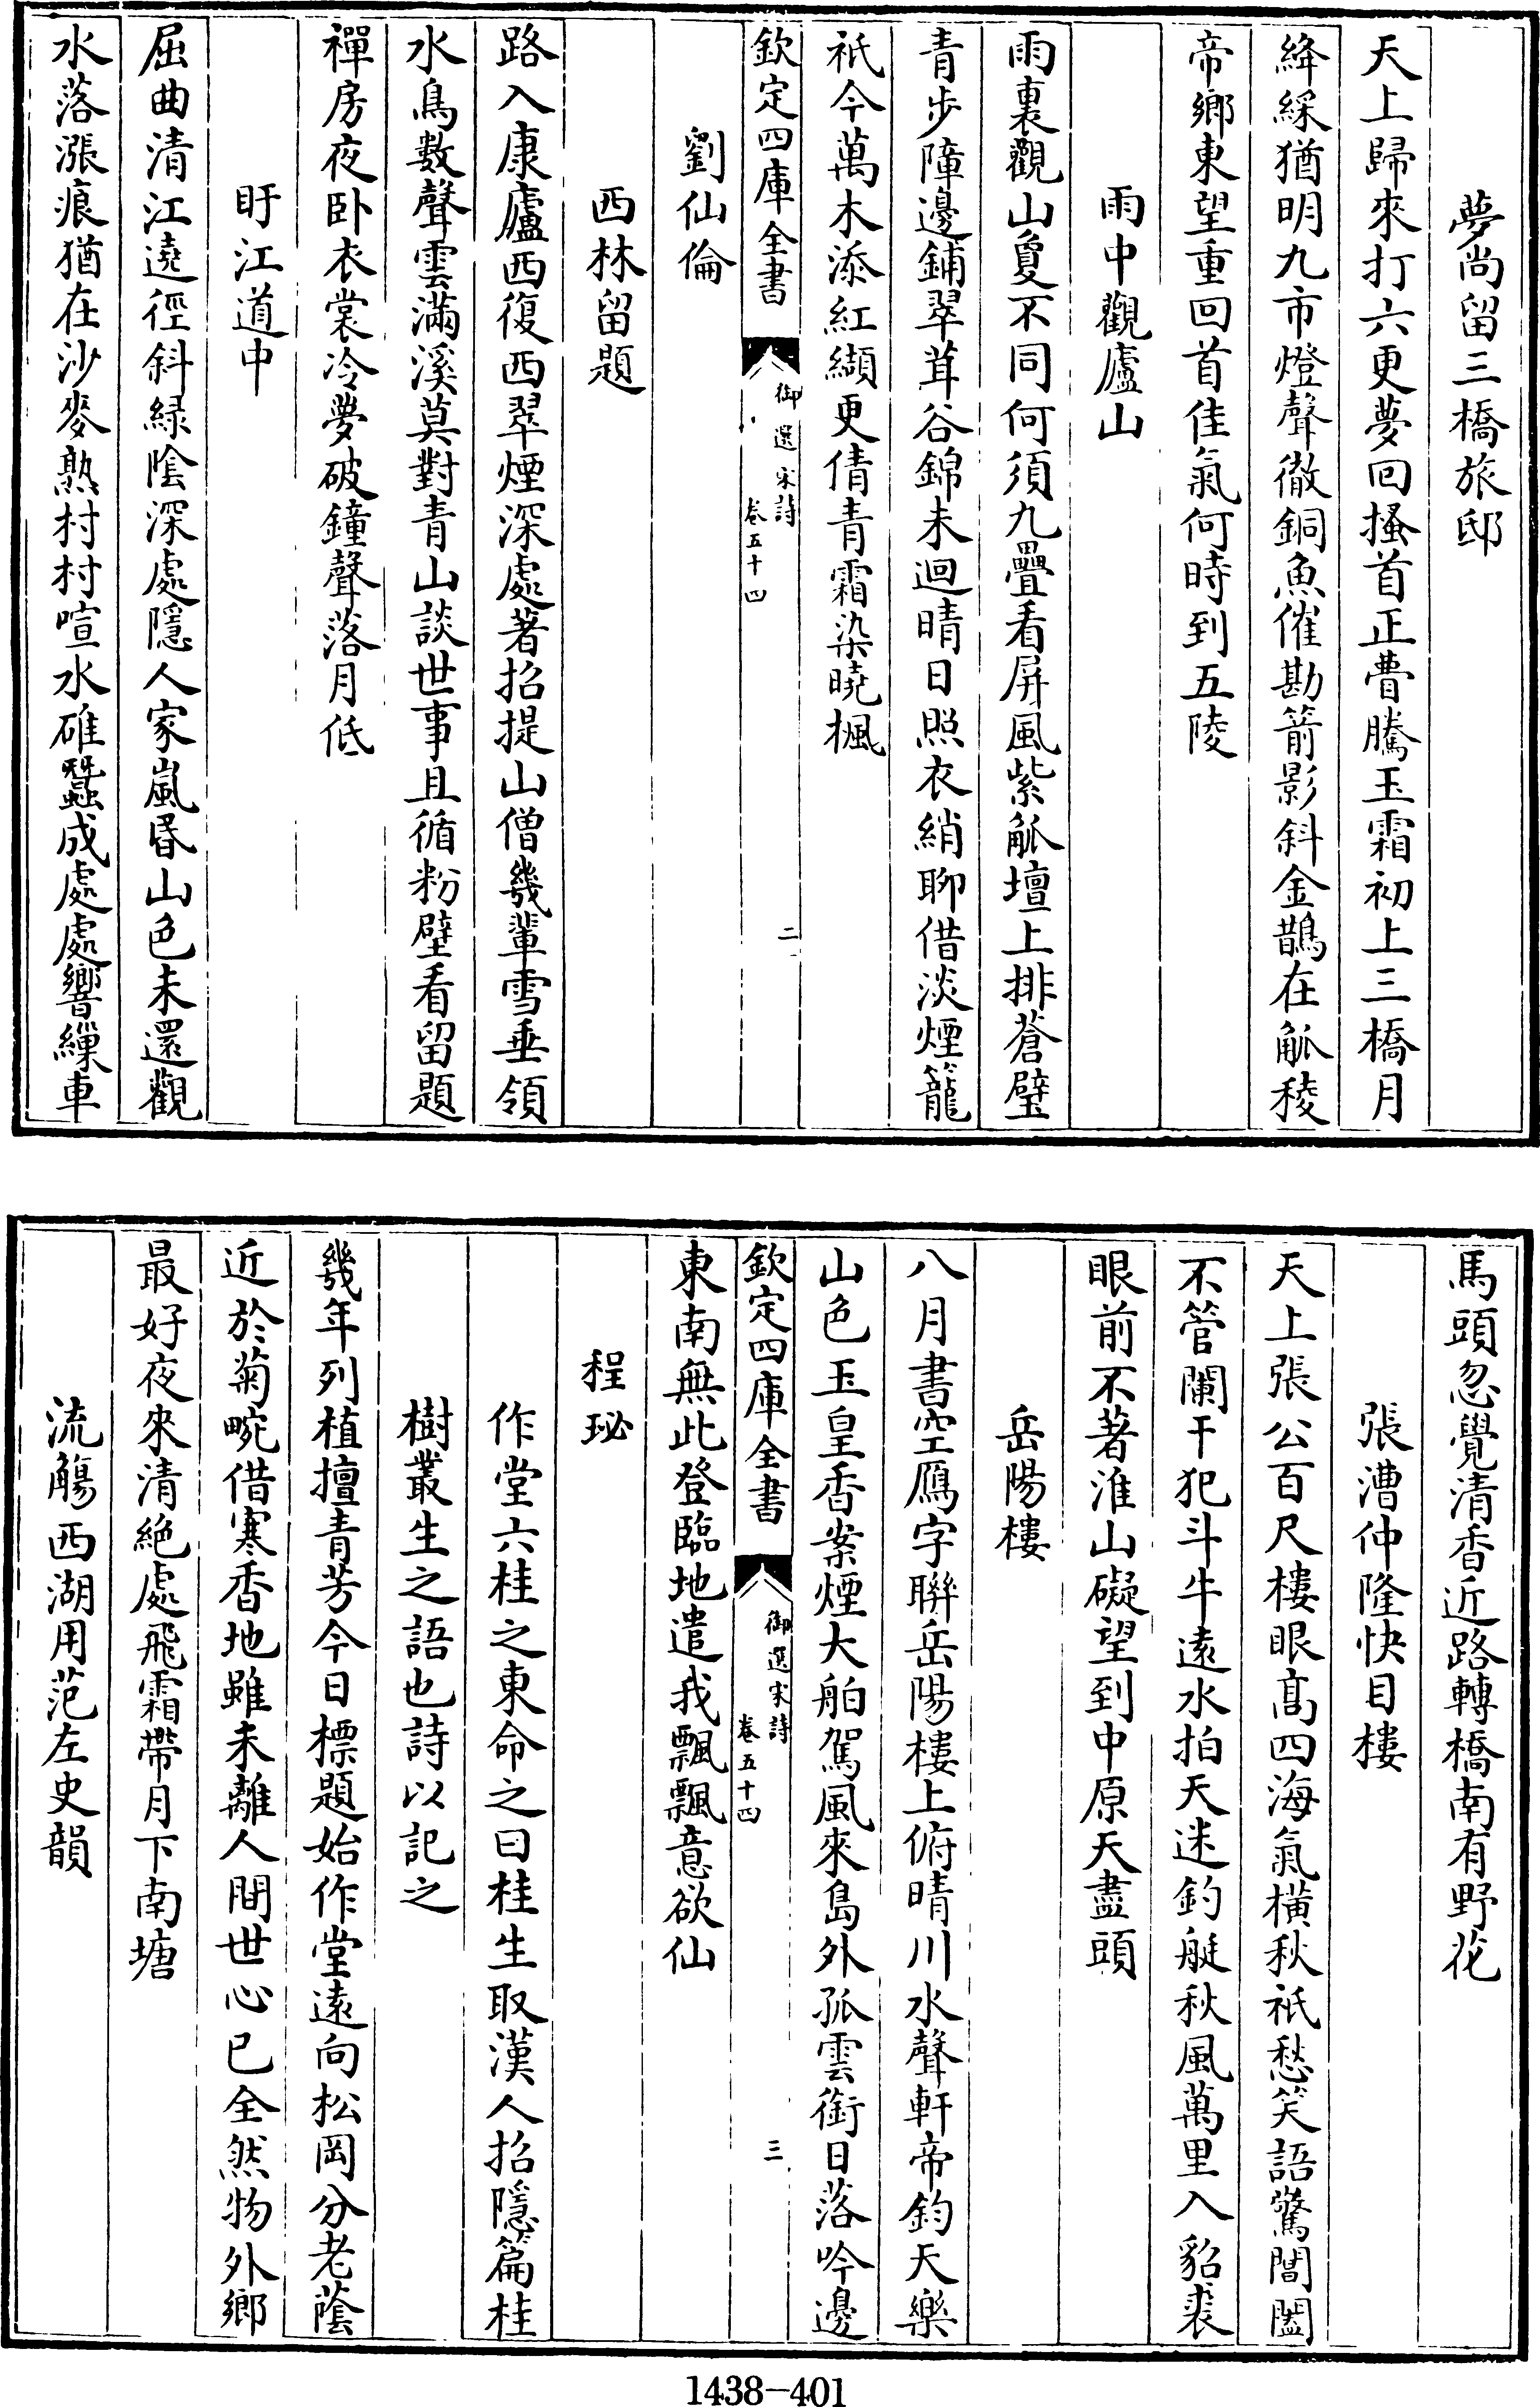 夢尚留三橋旅邸
天上歸來打六更夢回搔首正瞢騰玉霜初上三橋月
絳綵猶明九市燈聲徹銅魚催勘箭影斜金鵲在觚稜
帝鄉東望重回首佳氣何時到五陵
雨中觀廬山
雨裏觀山夐不同何須九疊看屏風紫觚壇上排蒼璧
青步障邊鋪翠茸谷錦未迴晴日照衣綃聊借淡煙籠
祇今萬木添紅纈更倩青霜染曉楓
欽定四庫全書
御選宋詩
卷五十四
二
劉仙倫
西林留題
路入康廬西復西翠煙深處著招提山僧幾輩雪垂領
水鳥數聲雲滿溪莫對青山談世事且循粉壁看留題
禪房夜卧衣裳冷夢破鐘聲落月低
盱江道中
屈曲清江遶徑斜緑陰深處隱人家嵐昏山色未還觀
水落漲痕猶在沙麥熟村村喧水碓蠶成處處響繅車
馬頭忽覺清香近路轉橋南有野花
張漕仲隆快目樓
天上張公百尺樓眼高四海氣橫秋祇愁笑語驚閶闔
不管闌干犯斗牛遠水拍天迷釣艇秋風萬里入貂裘
眼前不著淮山礙望到中原天盡頭
岳陽樓
八月書空鴈字聯岳陽樓上俯晴川水聲軒帝鈞天樂
山色玉皇香案煙大舶駕風來島外孤雲銜日落吟邊
欽定四庫全書
御選宋詩
卷五十四
三
東南無此登臨地遣我飄飄意欲仙
程珌
作堂六桂之東命之曰桂生取漢人招隱篇桂
樹叢生之語也詩以記之
幾年列植擅青芳今日標題始作堂遠向松岡分老蔭
近於菊畹借寒香地雖未離人間世心已全然物外鄉
最好夜來清絕處飛霜帶月下南塘
流觴西湖用范左史韻
1438-401